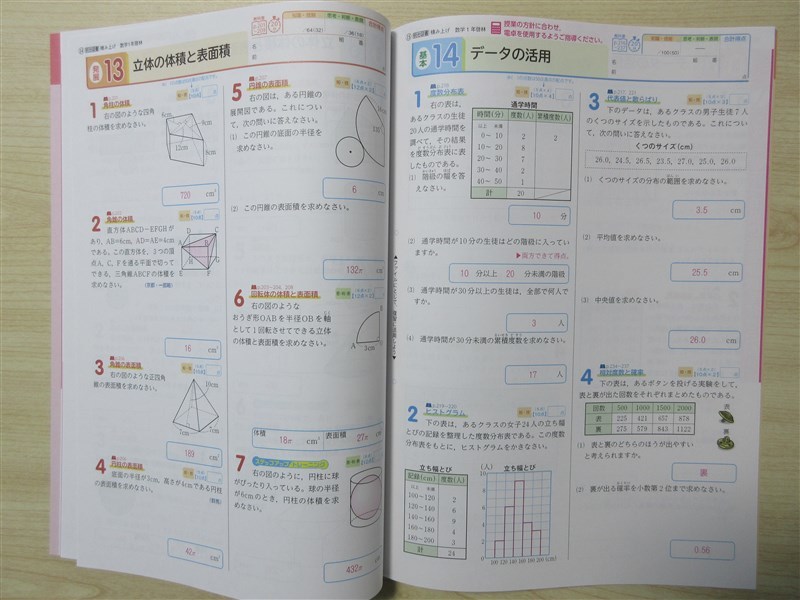 積み上げ 数学1年啓林
13 立体の体積と表面積
1 角柱の体積
右の図のような四角
柱の体積を求めなさい。
6cm
9cm
12cm
720 cm³
2 角錐の体積
直方体ABCD－EFGHが
あり、AB=6cm、AD=AE=4cmで
ある。この直方体を、3つの頂
点A、C、Fを通る平面で切って
できる、三角錐ABCFの体積を
求めなさい。
16 cm³
3 角錐の表面積
右の図のような正四角
錐の表面積を求めなさい。
10cm
7cm 7cm
189 cm²
4 円柱の表面積
底面の半径が3cm、高さが4cmである円柱
の表面積を求めなさい。
42π cm²
5 円錐の表面積
右の図は、ある円錐の
展開図である。これについ
て、次の問いに答えなさい。
(1) この円錐の底面の半径を
求めなさい。
6 cm
(2) この円錐の表面積を求めなさい。
132π cm²
6 回転体の体積と表面積
右の図のような
おうぎ形OABを半径OBを軸
として1回転させてできる立体
の体積と表面積を求めなさい。
A 3cm
体積 18π cm³ 表面積 27π cm²
7 ステップアップ
右の図のように、円柱に球
がぴったり入っている。球の半径
が6cmのとき、円柱の体積を求
めなさい。
432π cm³
積み上げ 数学1年啓林
授業の方針に合わせ、
電卓を使用するようご指導ください。
基本 14 データの活用
1 度数分布表
右の表は、
あるクラスの生徒
20人の通学時間を
調べて、その結果
を度数分布表に表
したものである。
(1) 階級の幅を答
えなさい。
通学時間
時間(分) 度数(人) 累積度数(人)
以上 未満
0～10 2 2
10～20 8
20～30 7
30～40 2
40～50 1
計 20
10 分
(2) 通学時間が10分の生徒はどの階級に入ってい
ますか。
▶両方できて得点。
10 分以上 20 分未満の階級
(3) 通学時間が30分以上の生徒は、全部で何人で
すか。
3 人
(4) 通学時間が30分未満の累積度数を求めなさい。
17 人
2 ヒストグラム
下の表は、あるクラスの女子24人の立ち幅
とびの記録を整理した度数分布表である。この度数
分布表をもとに、ヒストグラムをかきなさい。
立ち幅とび
記録(cm) 度数(人)
以上 未満
100～120 2
120～140 6
140～160 9
160～180 4
180～200 3
計 24
(人) 立ち幅とび
10
8
6
4
2
0
100 120 140 160 180 200 (cm)
3 代表値と散らばり
下のデータは、あるクラスの男子生徒7人
のくつのサイズを示したものである。これについ
て、次の問いに答えなさい。
くつのサイズ(cm)
26.0, 24.5, 26.5, 23.5, 27.0, 25.0, 26.0
(1) くつのサイズの分布の範囲を求めなさい。
3.5 cm
(2) 平均値を求めなさい。
25.5 cm
(3) 中央値を求めなさい。
26.0 cm
4 相対度数と確率
下の表は、あるボタンを投げる実験をして、
表と裏が出た回数をそれぞれまとめたものである。
回数 500 1000 1500 2000
表 225 421 657 878
裏 275 579 843 1122
表
裏
(1) 表と裏のどちらのほうが出やすい
と考えられますか。
裏
(2) 裏が出る確率を小数第2位まで求めなさい。
0.56